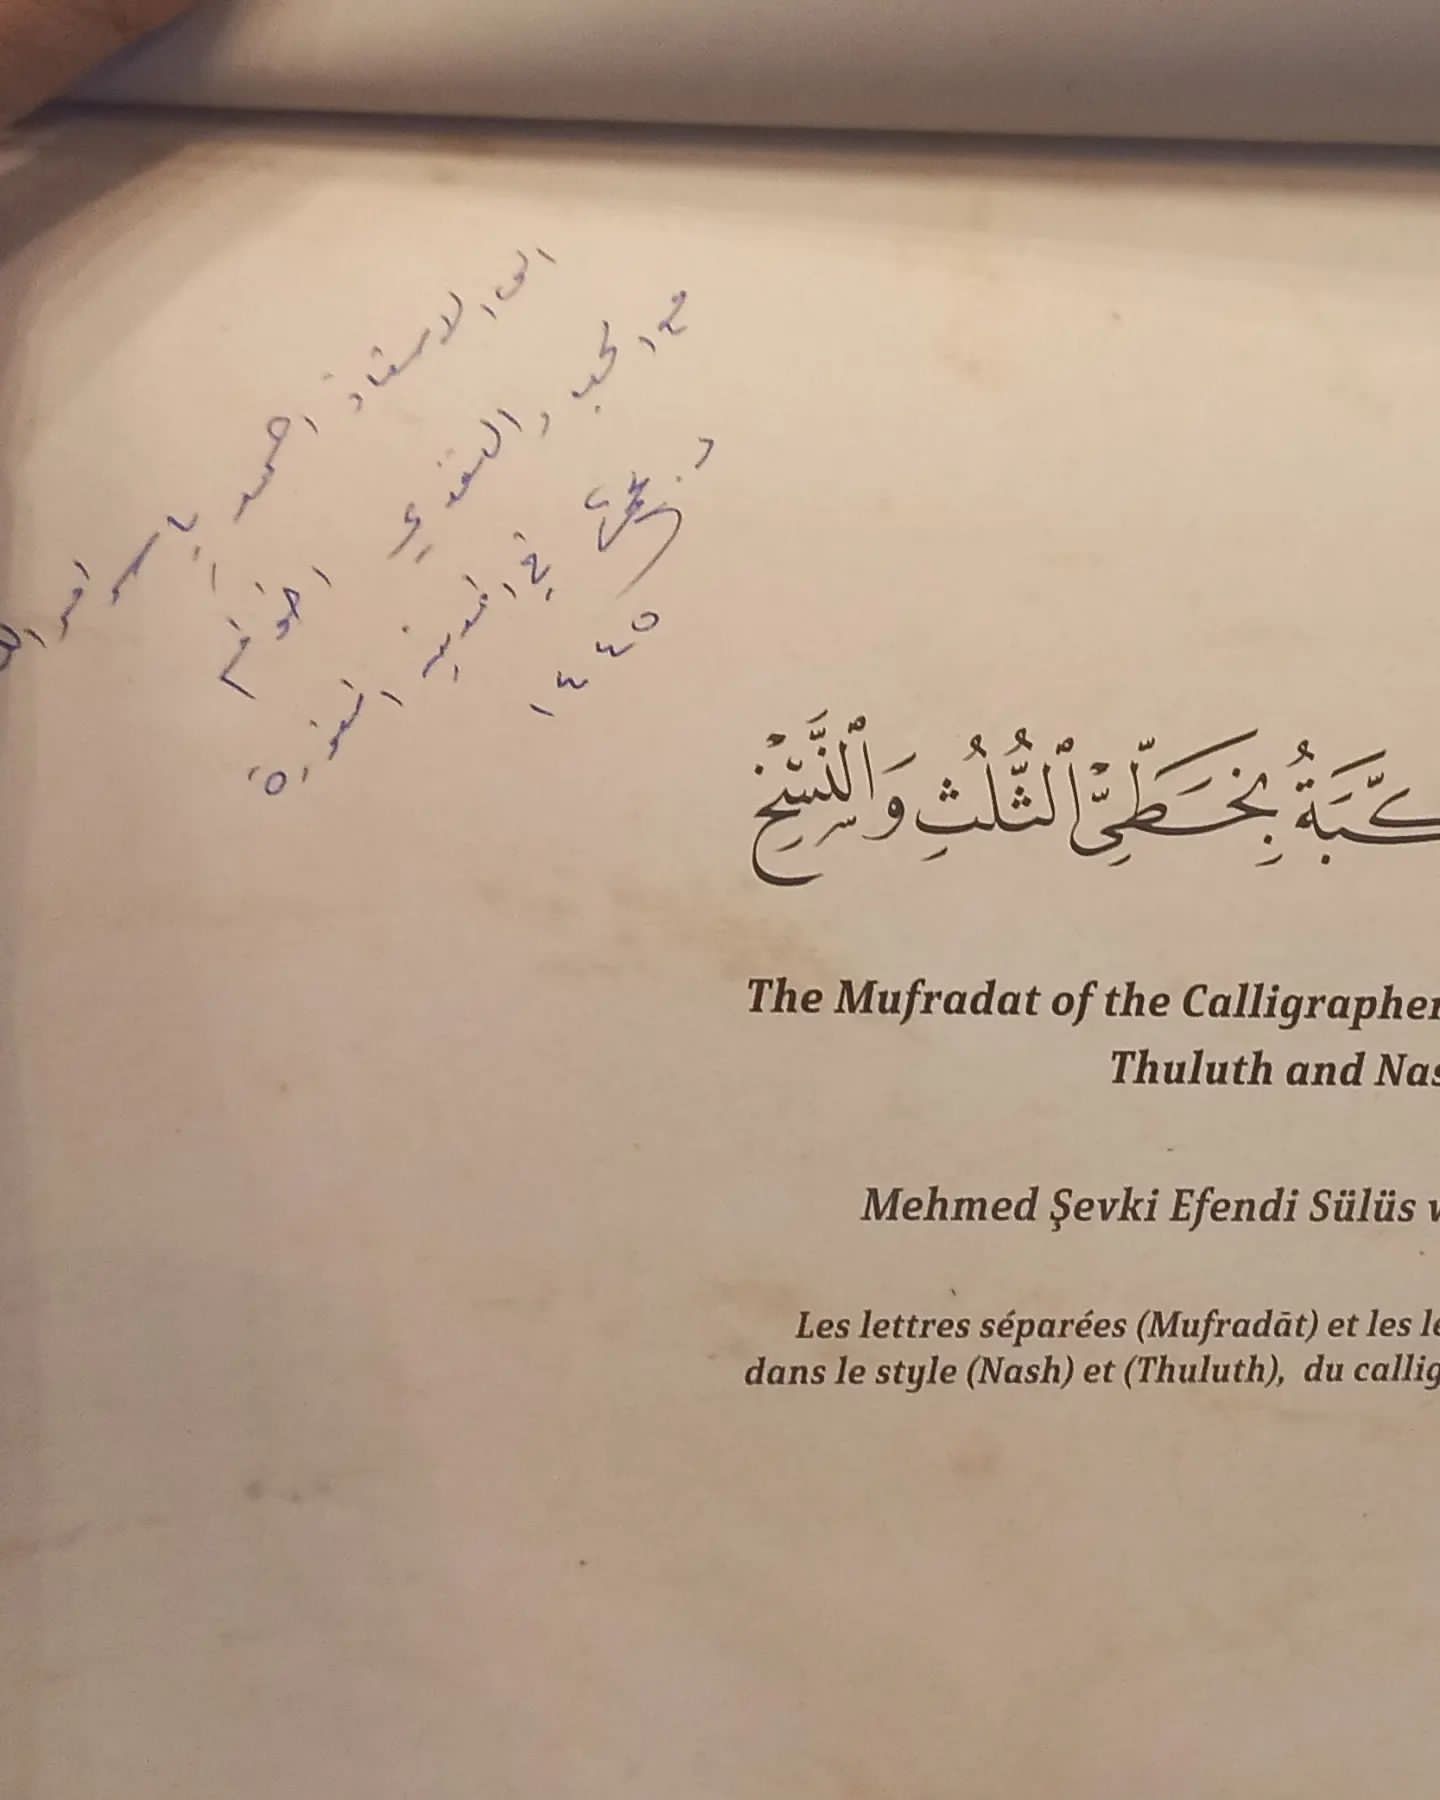 الى الاستاذ احمد
مع الحب والتقدير اخوكم
د.
في المدينة المنورة
١٤٤٥
كَّبَةُ بِخَطَّيِ ٱلثُّلُثِ وَٱلنَّسْخِ
The Mufradat of the Calligrapher
Thuluth and Nas
Mehmed Şevki Efendi Sülüs v
Les lettres séparées (Mufradāt) et les le
dans le style (Nash) et (Thuluth), du callig